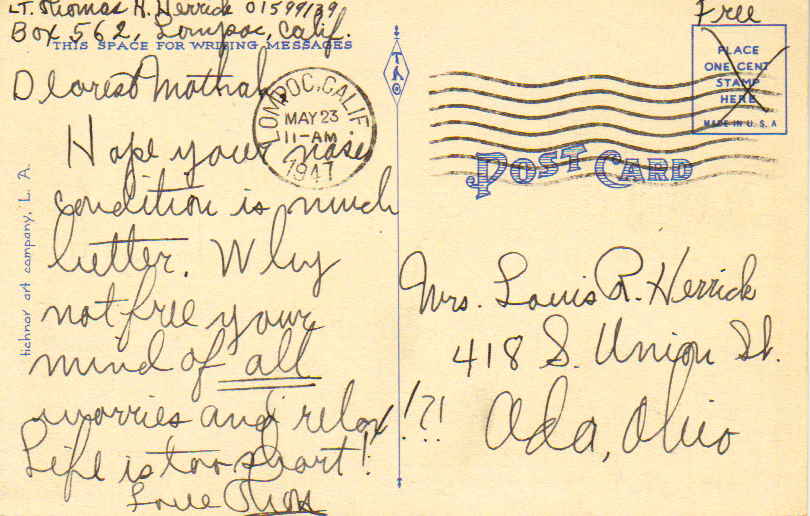 LT. Thomas H. Herrick 01599139
Box 562, Lompoc, Calif.
THIS SPACE FOR WRITING MESSAGES
Dearest Mothah
Hope your nose
condition is much
better. Why
not free your
mind of all
worries and relax!?!
Life is too short!
Love Thos
tichnor art company, L. A.
LOMPOC, CALIF
MAY 23
11-AM
1947
Free
PLACE
ONE CENT
STAMP
HERE
MADE IN U. S. A
POST CARD
Mrs. Louis R. Herrick
418 S. Union St.
Ada, Ohio